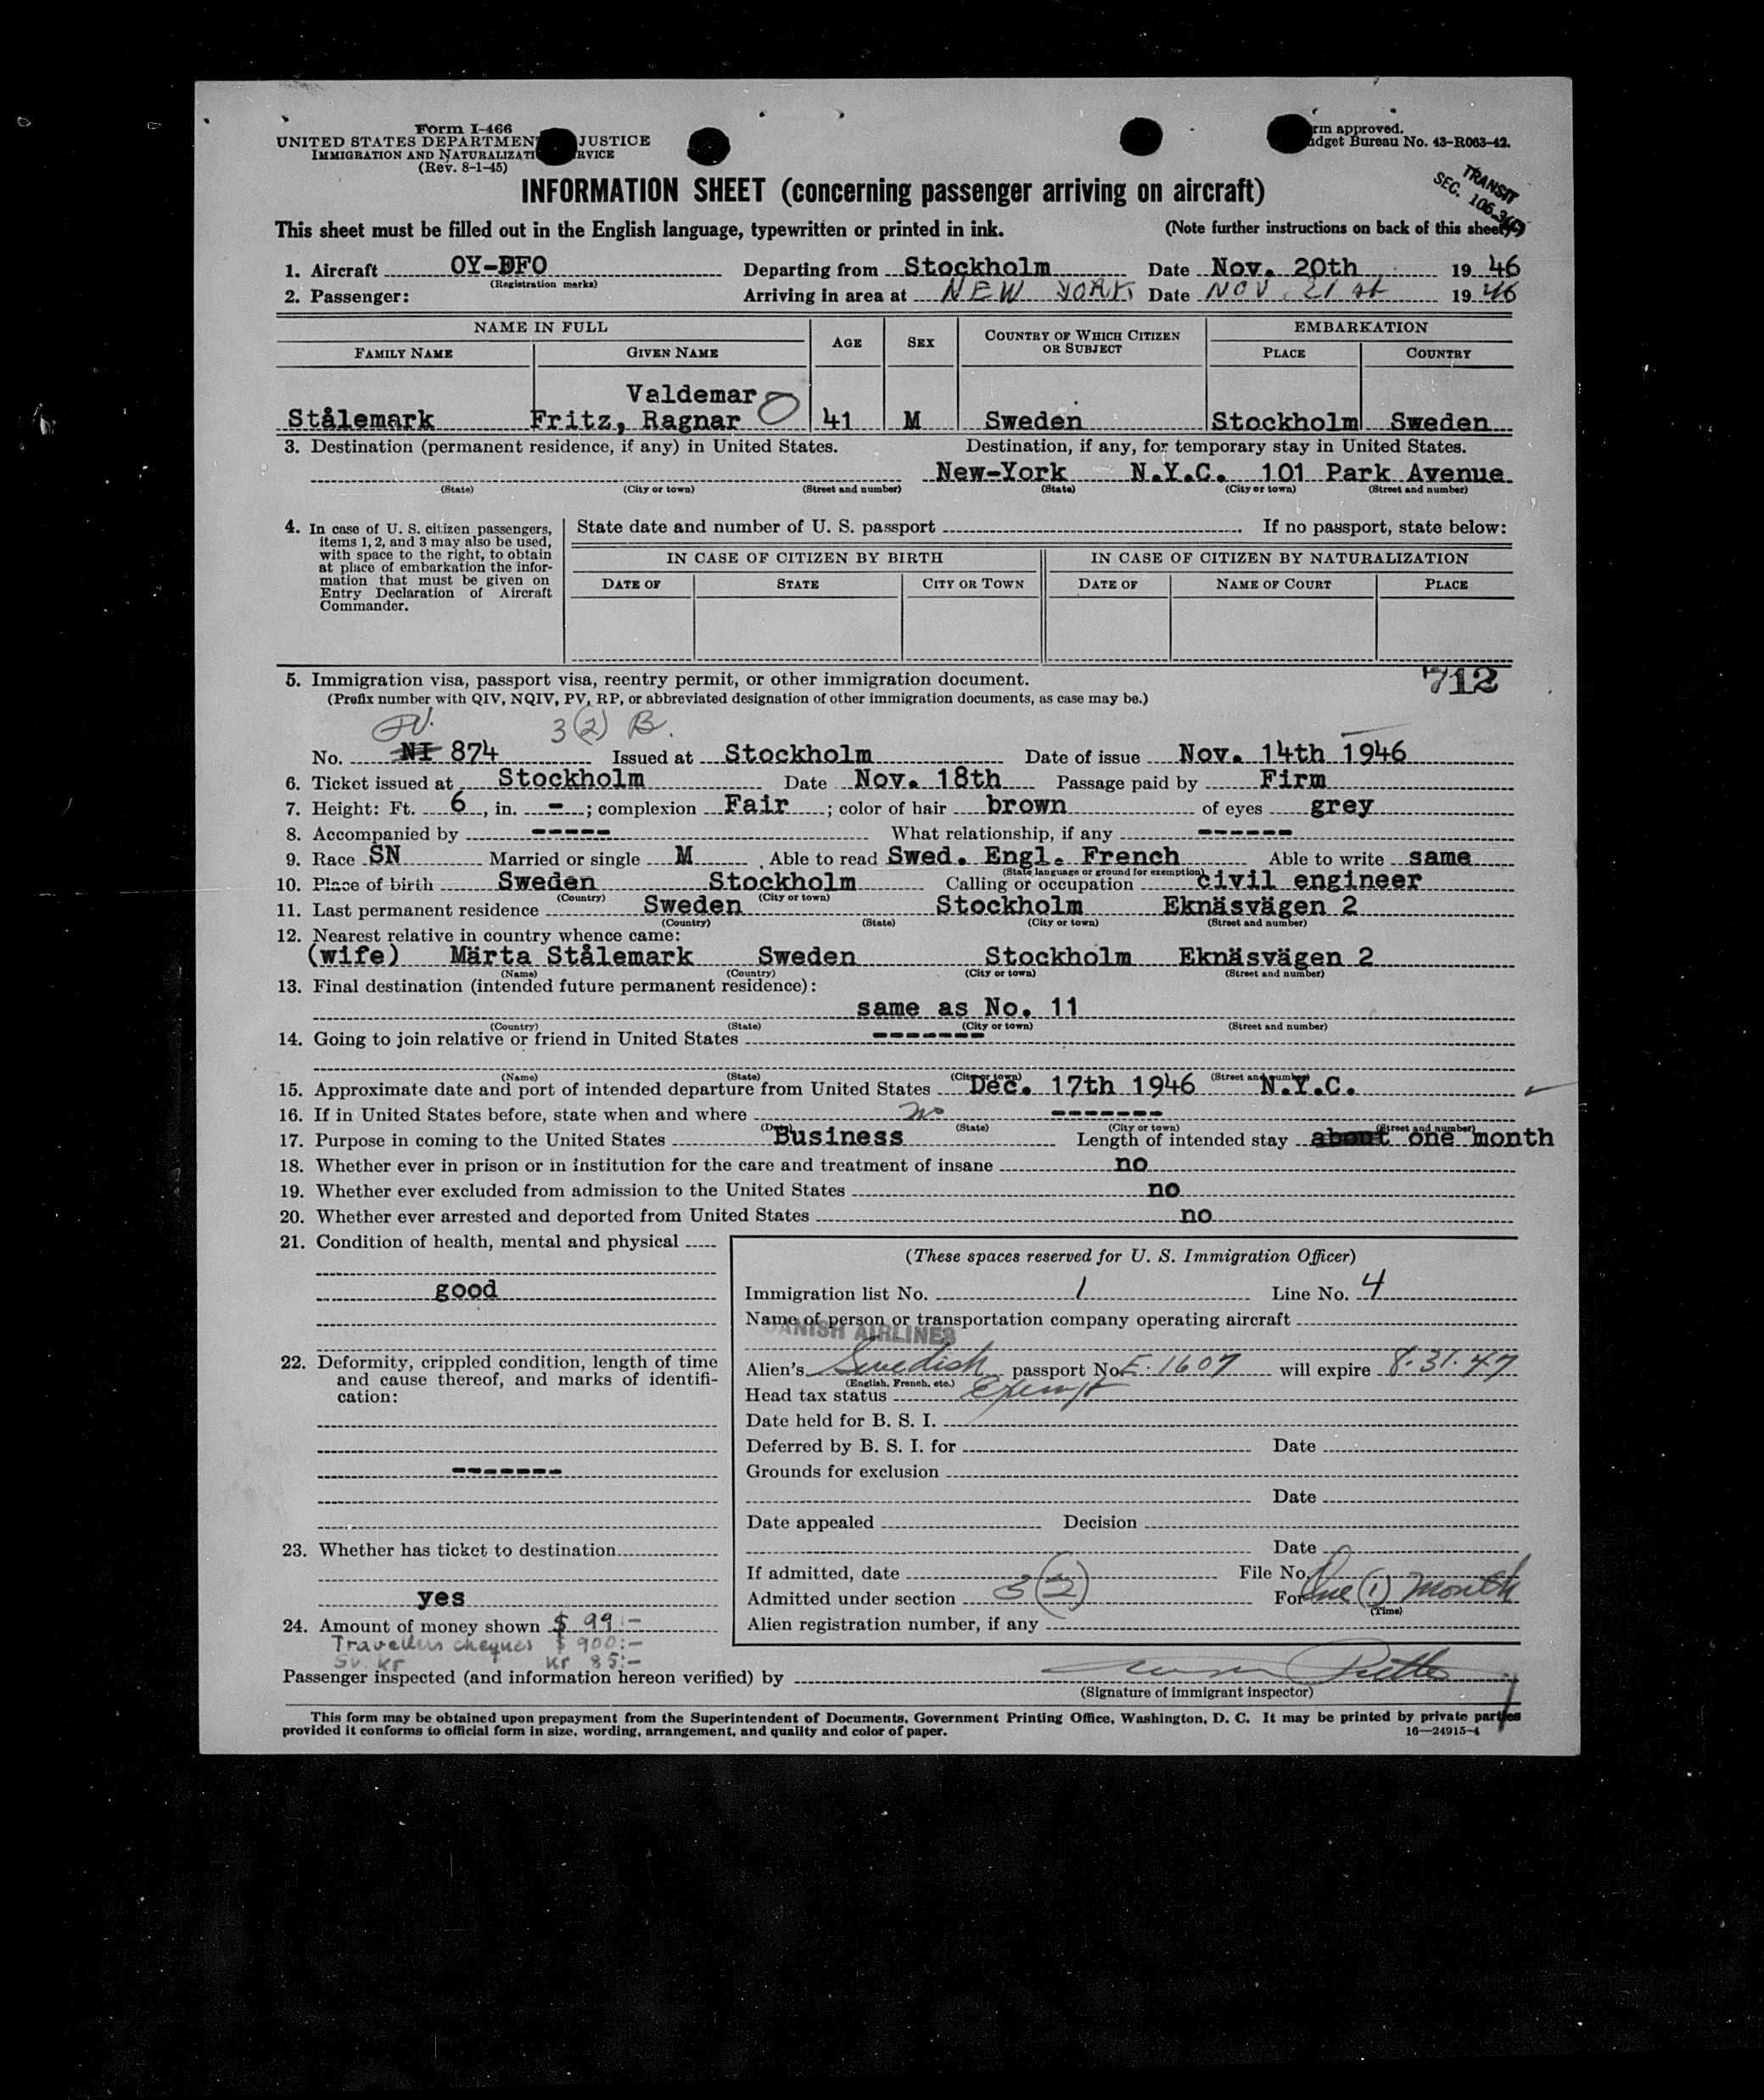 Form I-466
UNITED STATES DEPARTMENT JUSTICE
IMMIGRATION AND NATURALIZATI RVICE
(Rev. 8-1-45)
rm approved.
dget Bureau No. 43-R063-42.
TRANSIT
SEC. 106.3
INFORMATION SHEET (concerning passenger arriving on aircraft)
This sheet must be filled out in the English language, typewritten or printed in ink. (Note further instructions on back of this sheet.)
1. Aircraft OY-DFO Departing from Stockholm Date Nov. 20th 19 46
(Registration marks)
2. Passenger: Arriving in area at NEW YORK Date NOV 21 st 19 46
NAME IN FULL AGE SEX COUNTRY OF WHICH CITIZEN OR SUBJECT EMBARKATION
FAMILY NAME GIVEN NAME PLACE COUNTRY
Valdemar
Stålemark Fritz, Ragnar 41 M Sweden Stockholm Sweden
3. Destination (permanent residence, if any) in United States. Destination, if any, for temporary stay in United States.
New-York N.Y.C. 101 Park Avenue.
(State) (City or town) (Street and number) (State) (City or town) (Street and number)
4. In case of U. S. citizen passengers,
items 1, 2, and 3 may also be used,
with space to the right, to obtain
at place of embarkation the infor-
mation that must be given on
Entry Declaration of Aircraft
Commander.
State date and number of U. S. passport . If no passport, state below:
IN CASE OF CITIZEN BY BIRTH IN CASE OF CITIZEN BY NATURALIZATION
DATE OF STATE CITY OR TOWN DATE OF NAME OF COURT PLACE
712
5. Immigration visa, passport visa, reentry permit, or other immigration document.
(Prefix number with QIV, NQIV, PV, RP, or abbreviated designation of other immigration documents, as case may be.)
PV. 3(2) B.
No. NI 874 Issued at Stockholm Date of issue Nov. 14th 1946
6. Ticket issued at Stockholm Date Nov. 18th Passage paid by Firm
7. Height: Ft. 6, in. -; complexion Fair; color of hair brown of eyes grey
8. Accompanied by ----- What relationship, if any ------
9. Race SN Married or single M Able to read Swed. Engl. French Able to write same
(State language or ground for exemption)
10. Place of birth Sweden Stockholm Calling or occupation civil engineer
(Country) (City or town)
11. Last permanent residence Sweden Stockholm Eknäsvägen 2
(Country) (State) (City or town) (Street and number)
12. Nearest relative in country whence came:
(wife) Märta Stålemark Sweden Stockholm Eknäsvägen 2
(Name) (Country) (City or town) (Street and number)
13. Final destination (intended future permanent residence):
same as No. 11
(Country) (State) (City or town) (Street and number)
14. Going to join relative or friend in United States -------
(Name) (State) (City or town) (Street and number)
15. Approximate date and port of intended departure from United States Dec. 17th 1946 N.Y.C.
16. If in United States before, state when and where no -------
(Date) (State) (City or town) (Street and number)
17. Purpose in coming to the United States Business Length of intended stay about one month
18. Whether ever in prison or in institution for the care and treatment of insane no
19. Whether ever excluded from admission to the United States no
20. Whether ever arrested and deported from United States no
21. Condition of health, mental and physical
good
22. Deformity, crippled condition, length of time
and cause thereof, and marks of identifi-
cation:
-------
23. Whether has ticket to destination
yes
24. Amount of money shown $ 99:-
Travellers cheques $ 900:-
Sv. Kr Kr 85:-
(These spaces reserved for U. S. Immigration Officer)
Immigration list No. 1 Line No. 4
Name of person or transportation company operating aircraft
DANISH AIRLINES
Alien's Swedish passport No. E.1607 will expire 8.31.47
(English, French, etc.)
Head tax status Exempt
Date held for B. S. I.
Deferred by B. S. I. for Date
Grounds for exclusion
Date
Date appealed Decision
Date
If admitted, date File No.
Admitted under section 3(2) For One (1) Month
(Time)
Alien registration number, if any
Passenger inspected (and information hereon verified) by
(Signature of immigrant inspector)
This form may be obtained upon prepayment from the Superintendent of Documents, Government Printing Office, Washington, D. C. It may be printed by private parties
provided it conforms to official form in size, wording, arrangement, and quality and color of paper. 16—24915-4